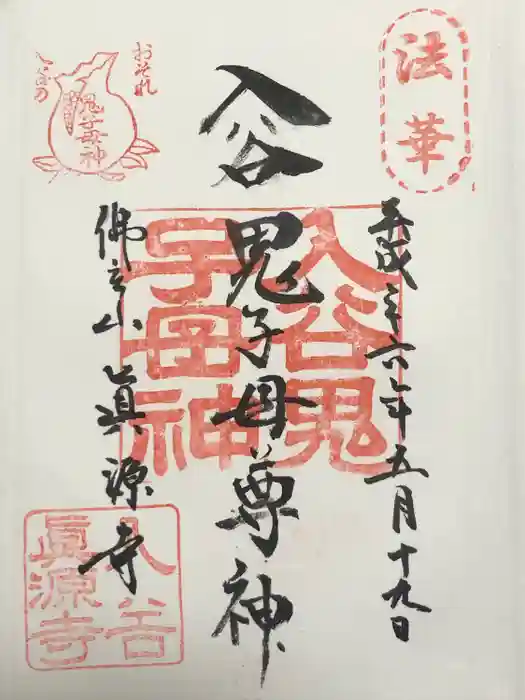 法華
平成二十六年五月十九日
入谷
鬼子母尊神
入谷鬼
子母神
佛立山 眞源寺
おそれ
鬼子母神
入谷
眞源寺